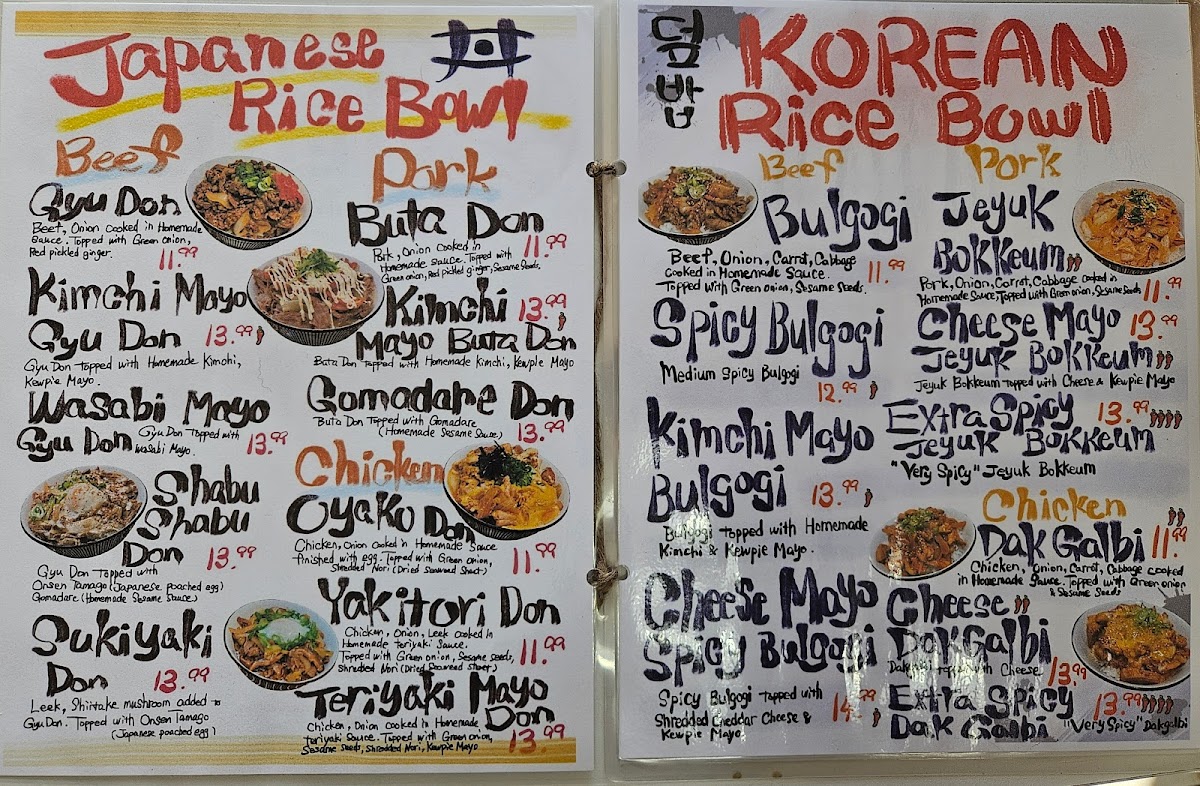 Japanese
丼
Rice Bowl
Beef
Gyu Don
Beef, Onion cooked in Homemade
Sauce. Topped with Green onion,
Red pickled ginger.
11.99
Kimchi Mayo
Gyu Don 13.99
Gyu Don Topped with Homemade Kimchi,
Kewpie Mayo.
Wasabi Mayo
Gyu Don
Gyu Don Topped with
Wasabi Mayo.
13.99
Shabu
Shabu
Don 13.99
Gyu Don Topped with
Onsen Tamago (Japanese poached egg)
Gomadare (Homemade Sesame Sauce)
Sukiyaki
Don 13.99
Leek, Shiitake mushroom added to
Gyu Don. Topped with Onsen Tamago
(Japanese poached egg)
Pork
Buta Don
Pork, Onion cooked in
Homemade Sauce. Topped with
Green onion, Red pickled ginger, Sesame Seeds.
11.99
Kimchi 13.99
Mayo Buta Don
Buta Don Topped with Homemade Kimchi, Kewpie Mayo
Gomadare Don
Buta Don Topped with Gomadare
(Homemade Sesame Sauce)
13.99
Chicken
Oyako Don
Chicken, Onion cooked in Homemade Sauce
finished with egg. Topped with Green onion,
Shredded Nori (Dried Seaweed Sheet)
11.99
Yakitori Don
Chicken, Onion, Leek cooked in
Homemade Teriyaki Sauce.
Topped with Green onion, Sesame Seeds,
Shredded Nori (Dried Seaweed Sheet)
11.99
Teriyaki Mayo
Don
Chicken, Onion cooked in Homemade
teriyaki Sauce. Topped with Green onion,
Sesame Seeds, Shredded Nori, Kewpie Mayo
13.99
덮밥
KOREAN
Rice Bowl
Beef
Bulgogi
Beef, Onion, Carrot, Cabbage
cooked in Homemade Sauce.
Topped with Green onion, Sesame Seeds.
11.99
Spicy Bulgogi
Medium Spicy Bulgogi
12.99
Kimchi Mayo
Bulgogi 13.99
Bulgogi Topped with Homemade
Kimchi & Kewpie Mayo.
Cheese Mayo
Spicy Bulgogi
Spicy Bulgogi topped with
Shredded Cheddar Cheese &
Kewpie Mayo
Pork
Jeyuk
Bokkeum
Pork, Onion, Carrot, Cabbage cooked in
Homemade Sauce. Topped with Green onion, Sesame Seeds
11.99
Cheese Mayo 13.99
Jeyuk Bokkeum
Jeyuk Bokkeum topped with Cheese & Kewpie Mayo
Extra Spicy 13.99
Jeyuk Bokkeum
"Very Spicy" Jeyuk Bokkeum
Chicken
Dak Galbi 11.99
Chicken, Onion, Carrot, Cabbage cooked
in Homemade Sauce. Topped with Green onion
& Sesame Seeds
Cheese
Dak Galbi
Dak Galbi topped with Cheese
13.99
Extra Spicy 13.99
Dak Galbi
"Very Spicy" Dakgalbi